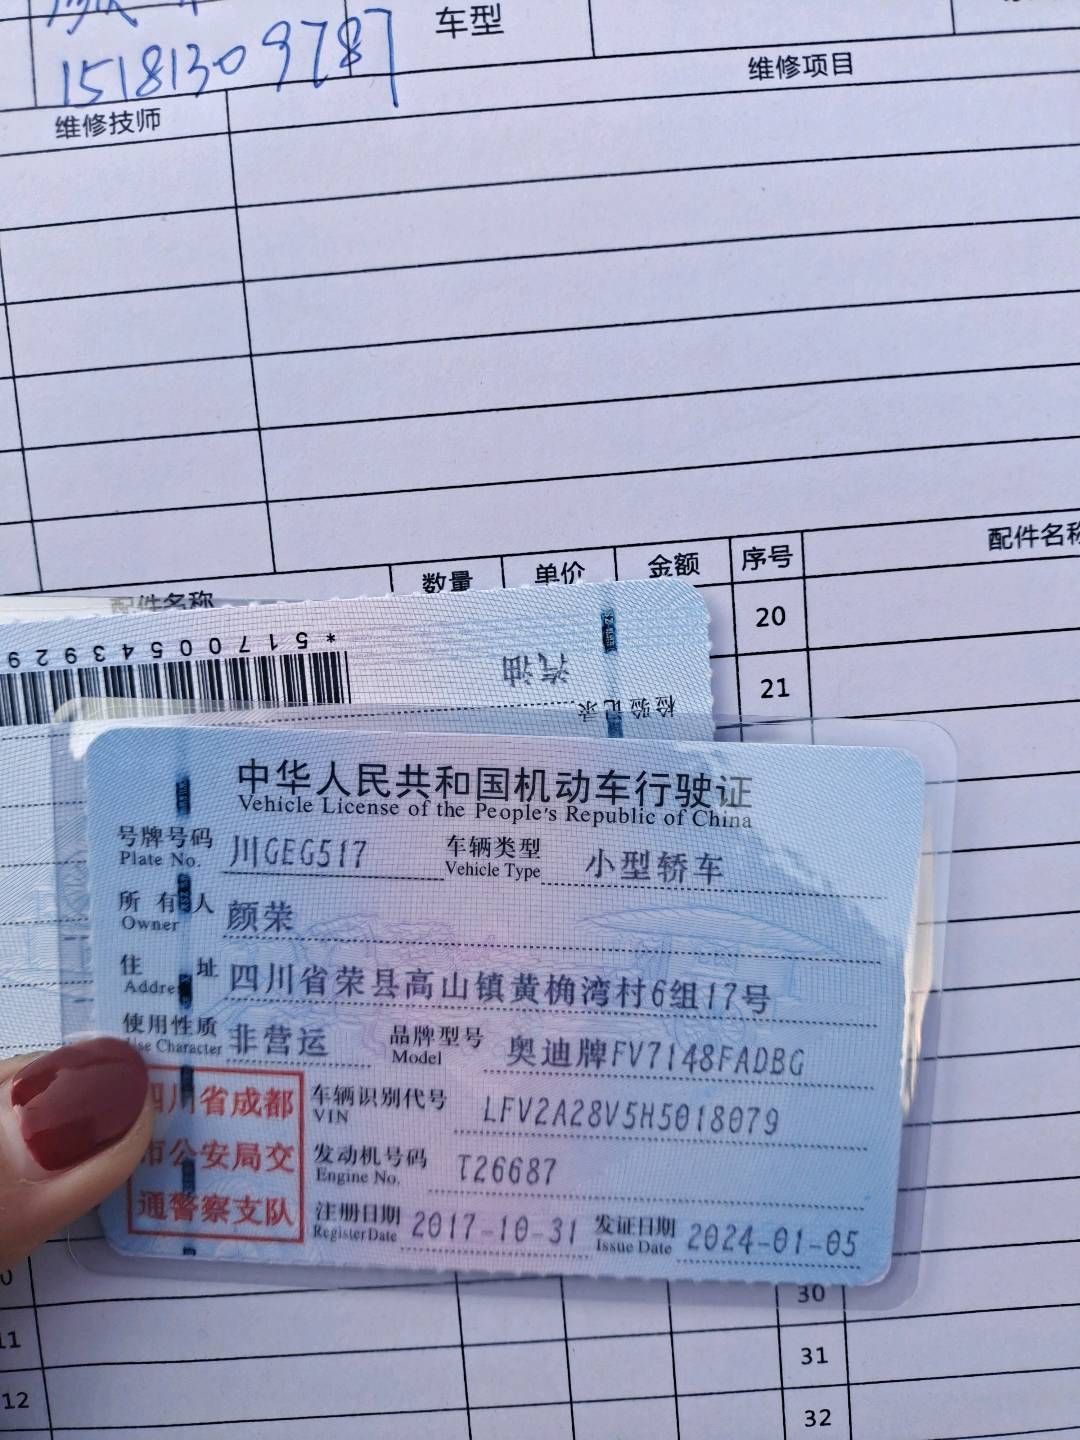 车型
15181309787
维修项目
维修技师
配件名称 数量 单价 金额 序号 配件名称
20
21
*5170054392 9
汽油
检验记录
中华人民共和国机动车行驶证
Vehicle License of the People's Republic of China
号牌号码 川GEG517 车辆类型 小型轿车
Plate No. Vehicle Type
所有人 颜荣
Owner
住址 四川省荣县高山镇黄桷湾村6组17号
Addre
使用性质 非营运 品牌型号 奥迪牌FV7148FADBG
Use Character Model
四川省成都
市公安局交
通警察支队
车辆识别代号 LFV2A28V5H5018079
VIN
发动机号码 T26687
Engine No.
注册日期 2017-10-31 发证日期 2024-01-05
Register Date Issue Date
30
11 31
12 32